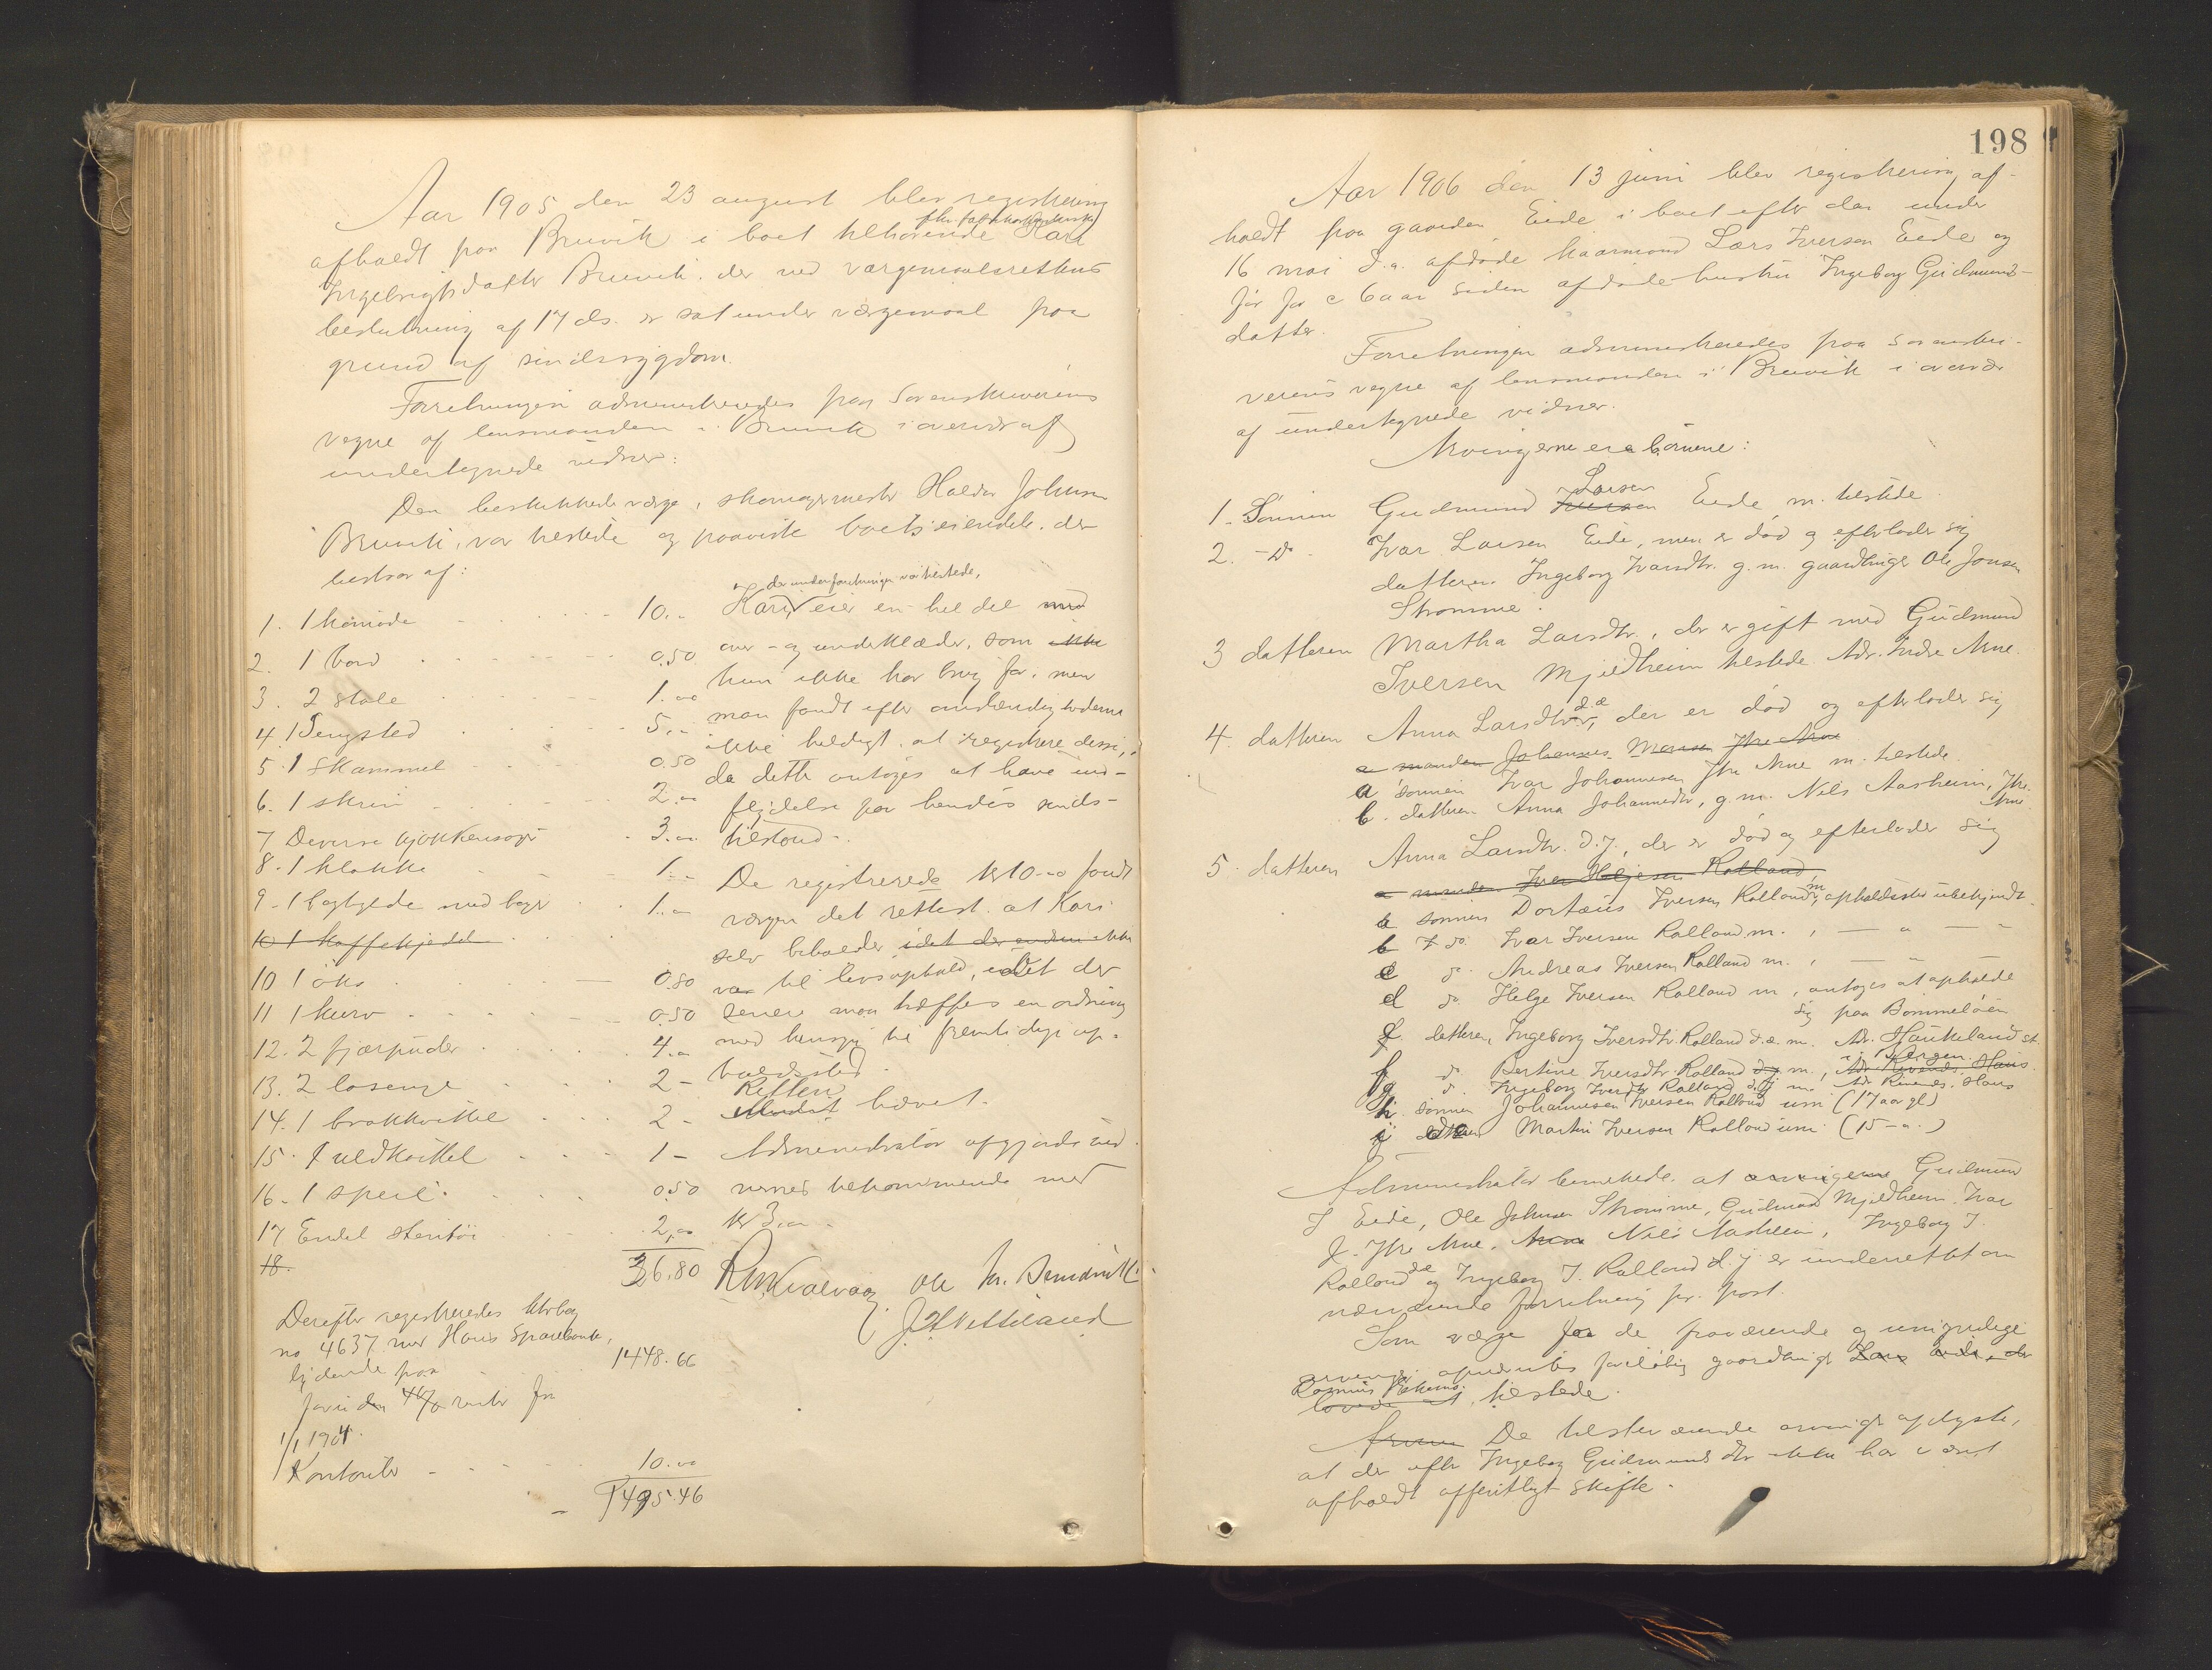 Aar 1905 den 23 august blev registrering
afholdt paa Bruvik i boet tilhørende Kari
Ingebrigtsdatter Bruvik, der ved værgemaalsrettens
beslutning af 17 ds. er sat under værgemaal paa
grund af sindssygdom.
Forretningen administreredes paa Sorenskriverens
vegne af lensmanden i Bruvik i overvær af
undertegnede vidner:
Den beskikkede værge, skomagermester Haldor Johnsen
Bruvik, var tilstede og paaviste boets eiendele, der
bestaar af:
1. 1 komode 10.-
2. 1 bord 0.50
3. 2 stole 1.00
4. 1 Sengsted 5.-
5. 1 skammel 0.50
6. 1 skrin 2.00
7 Diverse kjøkkensager 3.00
8. 1 klokke 1.-
9. 1 boghylde med bøger 1.00
10 1 kaffekjedel
10 1 øks 0.80
11 1 kurv 0.50
12. 2 fjærpuder 4.00
13. 2 lagenge 2-
14. 1 brokkoittel 2-
15. 1 uldkoittel 1-
16. 1 speil 0.50
17 Endel stentøi 2,00
18.
36.80
Derefter registreredes bkrbog
no 4637 med Haus Sparebank,
lydende paa 1448.66
foruden renter fra
1/1 1904.
Kontanter 10.00
1495.46
der under forretningen var tilstede,
Kari eier en hel del
over- og underklæder, som ikke
hun ikke har brug for, men
man fandt efter omstændighederne
ikke heldigt at registrere disse,
da dette antoges at have ind-
flydelse paa hendes sinds-
tilstand.
De registrerede kr 10.00 fandt
værgen det rettest at Kari
selv beholder idet der ikke
var til livsophold, idet der
senere maa træffes en ordning
med hensyn til fremtidige op-
holdssted.
Retten
hævet.
Administrator afgjorde vid-
nernes tilkommende med
kr 3.00.
198
Aar 1906 den 13 juni blev registrering af-
holdt paa gaarden Eide i boet efter den under
16 mai d.a. afdøde kaarmand Lars Iversen Eide og
før for c 6 aar siden afdøde hustru Ingeborg Gudmunds-
datter.
Forretningen administreredes paa sorenskri-
verens vegne af lensmanden i Bruvik i overvær
af undertegnede vidner.
Arvingerne er børnene:
1. Sønnen Gudmund Iversen Larsen Eide m. tilstede
2. - Do. Ivar Larsen Eide, men er død og efterlader sig
datteren Ingeborg Ivarsdtr. g.m. gaardbruger Ole Jonsen
Strømme.
3 datteren Martha Larsdtr., der er gift med Gudmund
Iversen Mjeldheim tilstede Adr. Indre Arne.
4. datteren Anna Larsdtr. d.æ., der er død og efterlader sig
a manden Johannes Monsen Ytre Arne
a sønnen Ivar Johannesen Ytre Arne m. tilstede
b. datteren Anna Johannesdtr, g.m. Nils Aasheim, Ytre
Arne
5. datteren Anna Larsdtr. d.y., der er død og efterlader sig
a manden Iver Helgesen Rolland
a sønnen Dortæus Iversen Rolland m, opholdssted ubekjendt
b do. Ivar Iversen Rolland m., — " —
c do. Andreas Iversen Rolland m., —
d do. Helge Iversen Rolland m, antages at opholde
sig paa Bømmeløen
datteren, Ingeborg Iversdtr. Rolland d.æ. m. Adr. Haukeland st.
Bergen.
f do. Bertine Iversdtr. Rolland m., Adr. Revends. Haus
g d. Ingeborg Iversdtr Rolland d.y. m. Adr. Revends. Haus
h. sønnen Johannesen Iversen Rolland um (17 aar gl)
i Martin Iversen Rolland um. (15 - " -)
Administrator bemerkede at arvingerne Gudmund
J Eide, Ole Johnsen Strømme, Gudmund Mjeldheim, Ivar
J. Ytre Arne, Nils Aasheim, Ingeborg I.
Rolland d.æ. og Ingeborg I. Rolland d.y. er underrettet om
nærværende forretning pr. post.
Som værge for de fraværende og umyndige
arvinger opnævntes foreløbig gaardbruger
Rasmus tilstede.
De tilstedeværende arvinger oplyste,
at der efter Ingeborg Gudmundsdtr ikke har været
afholdt offentligt skifte.